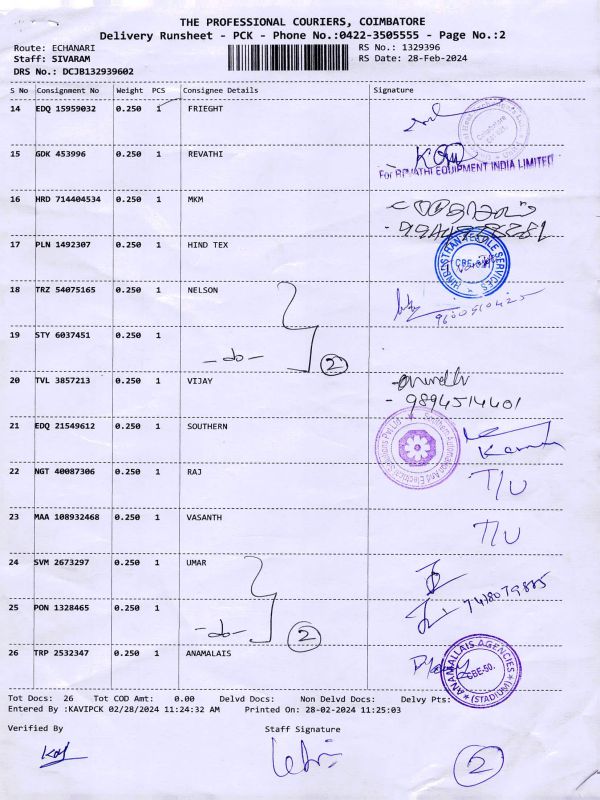 THE PROFESSIONAL COURIERS, COIMBATORE
Delivery Runsheet - PCK - Phone No.:0422-3505555 - Page No.:2
Route: ECHANARI
RS No.: 1329396
Staff: SIVARAM
RS Date: 28-Feb-2024
DRS No.: DCJB132939602
S No Consignment No Weight PCS Consignee Details Signature
14 EDQ 15959032 0.250 1 FRIEGHT
15 GDK 453996 0.250 1 REVATHI
For REVATHI EQUIPMENT INDIA LIMITED
16 HRD 714404534 0.250 1 MKM
17 PLN 1492307 0.250 1 HIND TEX
18 TRZ 54075165 0.250 1 NELSON
9600510425
19 STY 6037451 0.250 1
-do- 2
20 TVL 3857213 0.250 1 VIJAY
- 9894514401
21 EDQ 21549612 0.250 1 SOUTHERN
22 NGT 40087306 0.250 1 RAJ T/U
23 MAA 108932468 0.250 1 VASANTH T/U
24 SVM 2673297 0.250 1 UMAR
25 PON 1328465 0.250 1
-do- 2
26 TRP 2532347 0.250 1 ANAMALAIS
ANAMALLAIS AGENCIES
CBE-50.
(STADIUM)
Tot Docs: 26 Tot COD Amt: 0.00 Delvd Docs: Non Delvd Docs: Delvy Pts:
Entered By :KAVIPCK 02/28/2024 11:24:32 AM Printed On: 28-02-2024 11:25:03
Verified By Staff Signature
2